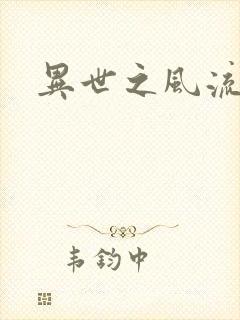 異世之風流
韦鈞中